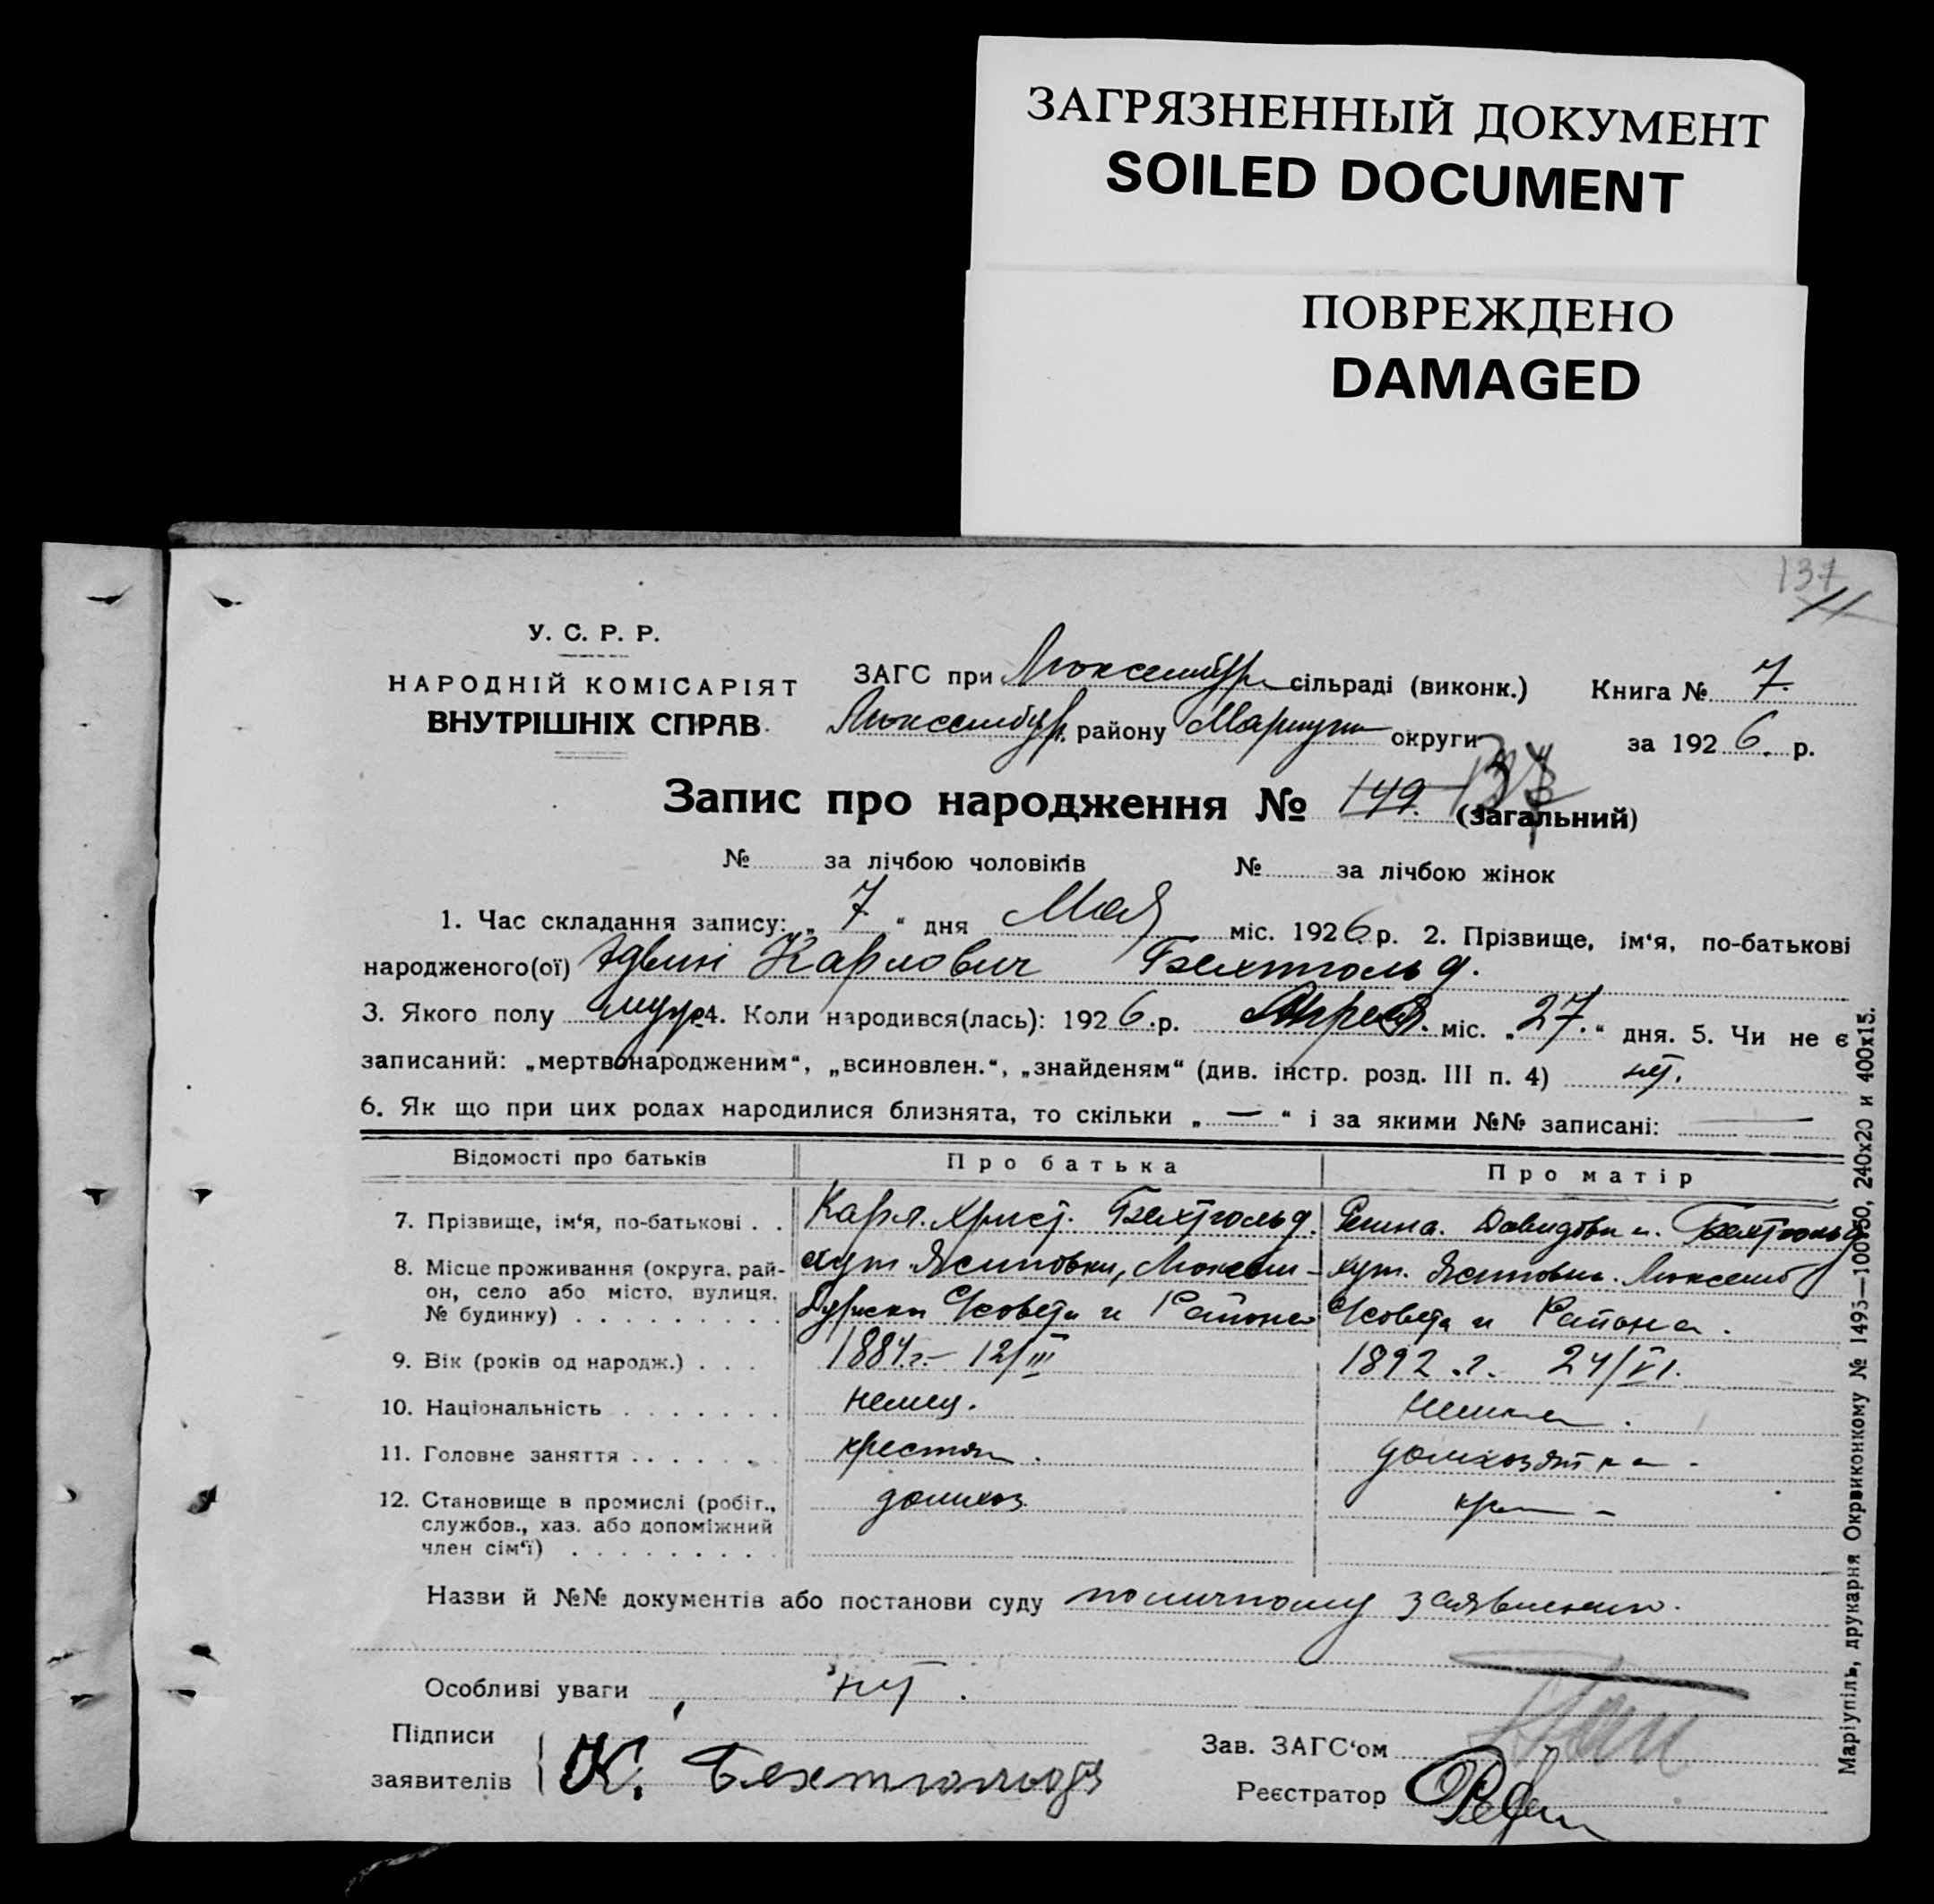 ЗАГРЯЗНЕННЫЙ ДОКУМЕНТ
SOILED DOCUMENT
ПОВРЕЖДЕНО
DAMAGED
137
У. С. Р. Р.
НАРОДНІЙ КОМІСАРІЯТ
ВНУТРІШНІХ СПРАВ
ЗАГС при Люксембург сільраді (виконк.) Книга № 7.
Люксембур. району Мариуп округи за 1926. р.
Запис про народження № 149. 137 (загальний)
№ за лічбою чоловіків № за лічбою жінок
1. Час складання запису: „ 7 “ дня Мая міс. 1926 р. 2. Прізвище, ім‘я, по-батькові
народженого(ої) Эдвин Карлович Бехтгольд.
3. Якого полу муж. 4. Коли народився(лась): 1926.р. Апреля. міс. „27.“ дня. 5. Чи не є
записаний: „мертвонародженим“, „всиновлен.“, „знайденям“ (див. інстр. розд. III п. 4) нет.
6. Як що при цих родах народилися близнята, то скільки „—“ і за якими №№ записані: —
Відомості про батьків Про батька Про матір
7. Прізвище, ім‘я, по-батькові . . Карл. Христ. Бехтгольд. Регина. Давидовн. Бехтгольд
8. Місце проживання (округа, рай-
он, село або місто, вулиця,
№ будинку)
хут. Ясиновки, Люксем-
бургско С/совета и Района
хут. Ясиновка. Люксемб
С/совета и Района.
9. Вік (років од народж.) . . . 1884.г.– 12/III 1892.г. 24/VI.
10. Національність немец. немка.
11. Головне заняття крестян. домхозяйка.
12. Становище в промислі (робіт.,
службов., хаз. або допоміжний
член сім‘ї)
домхоз.
Назви й №№ документів або постанови суду по личному заявлению.
Особливі уваги нет.
Підписи
заявителів К. Бехтгольдъ
Зав. ЗАГС‘ом
Реєстратор
Маріупіль, друкарня Окрвиконкому № 1495—100×50, 240х20 и 400х15.